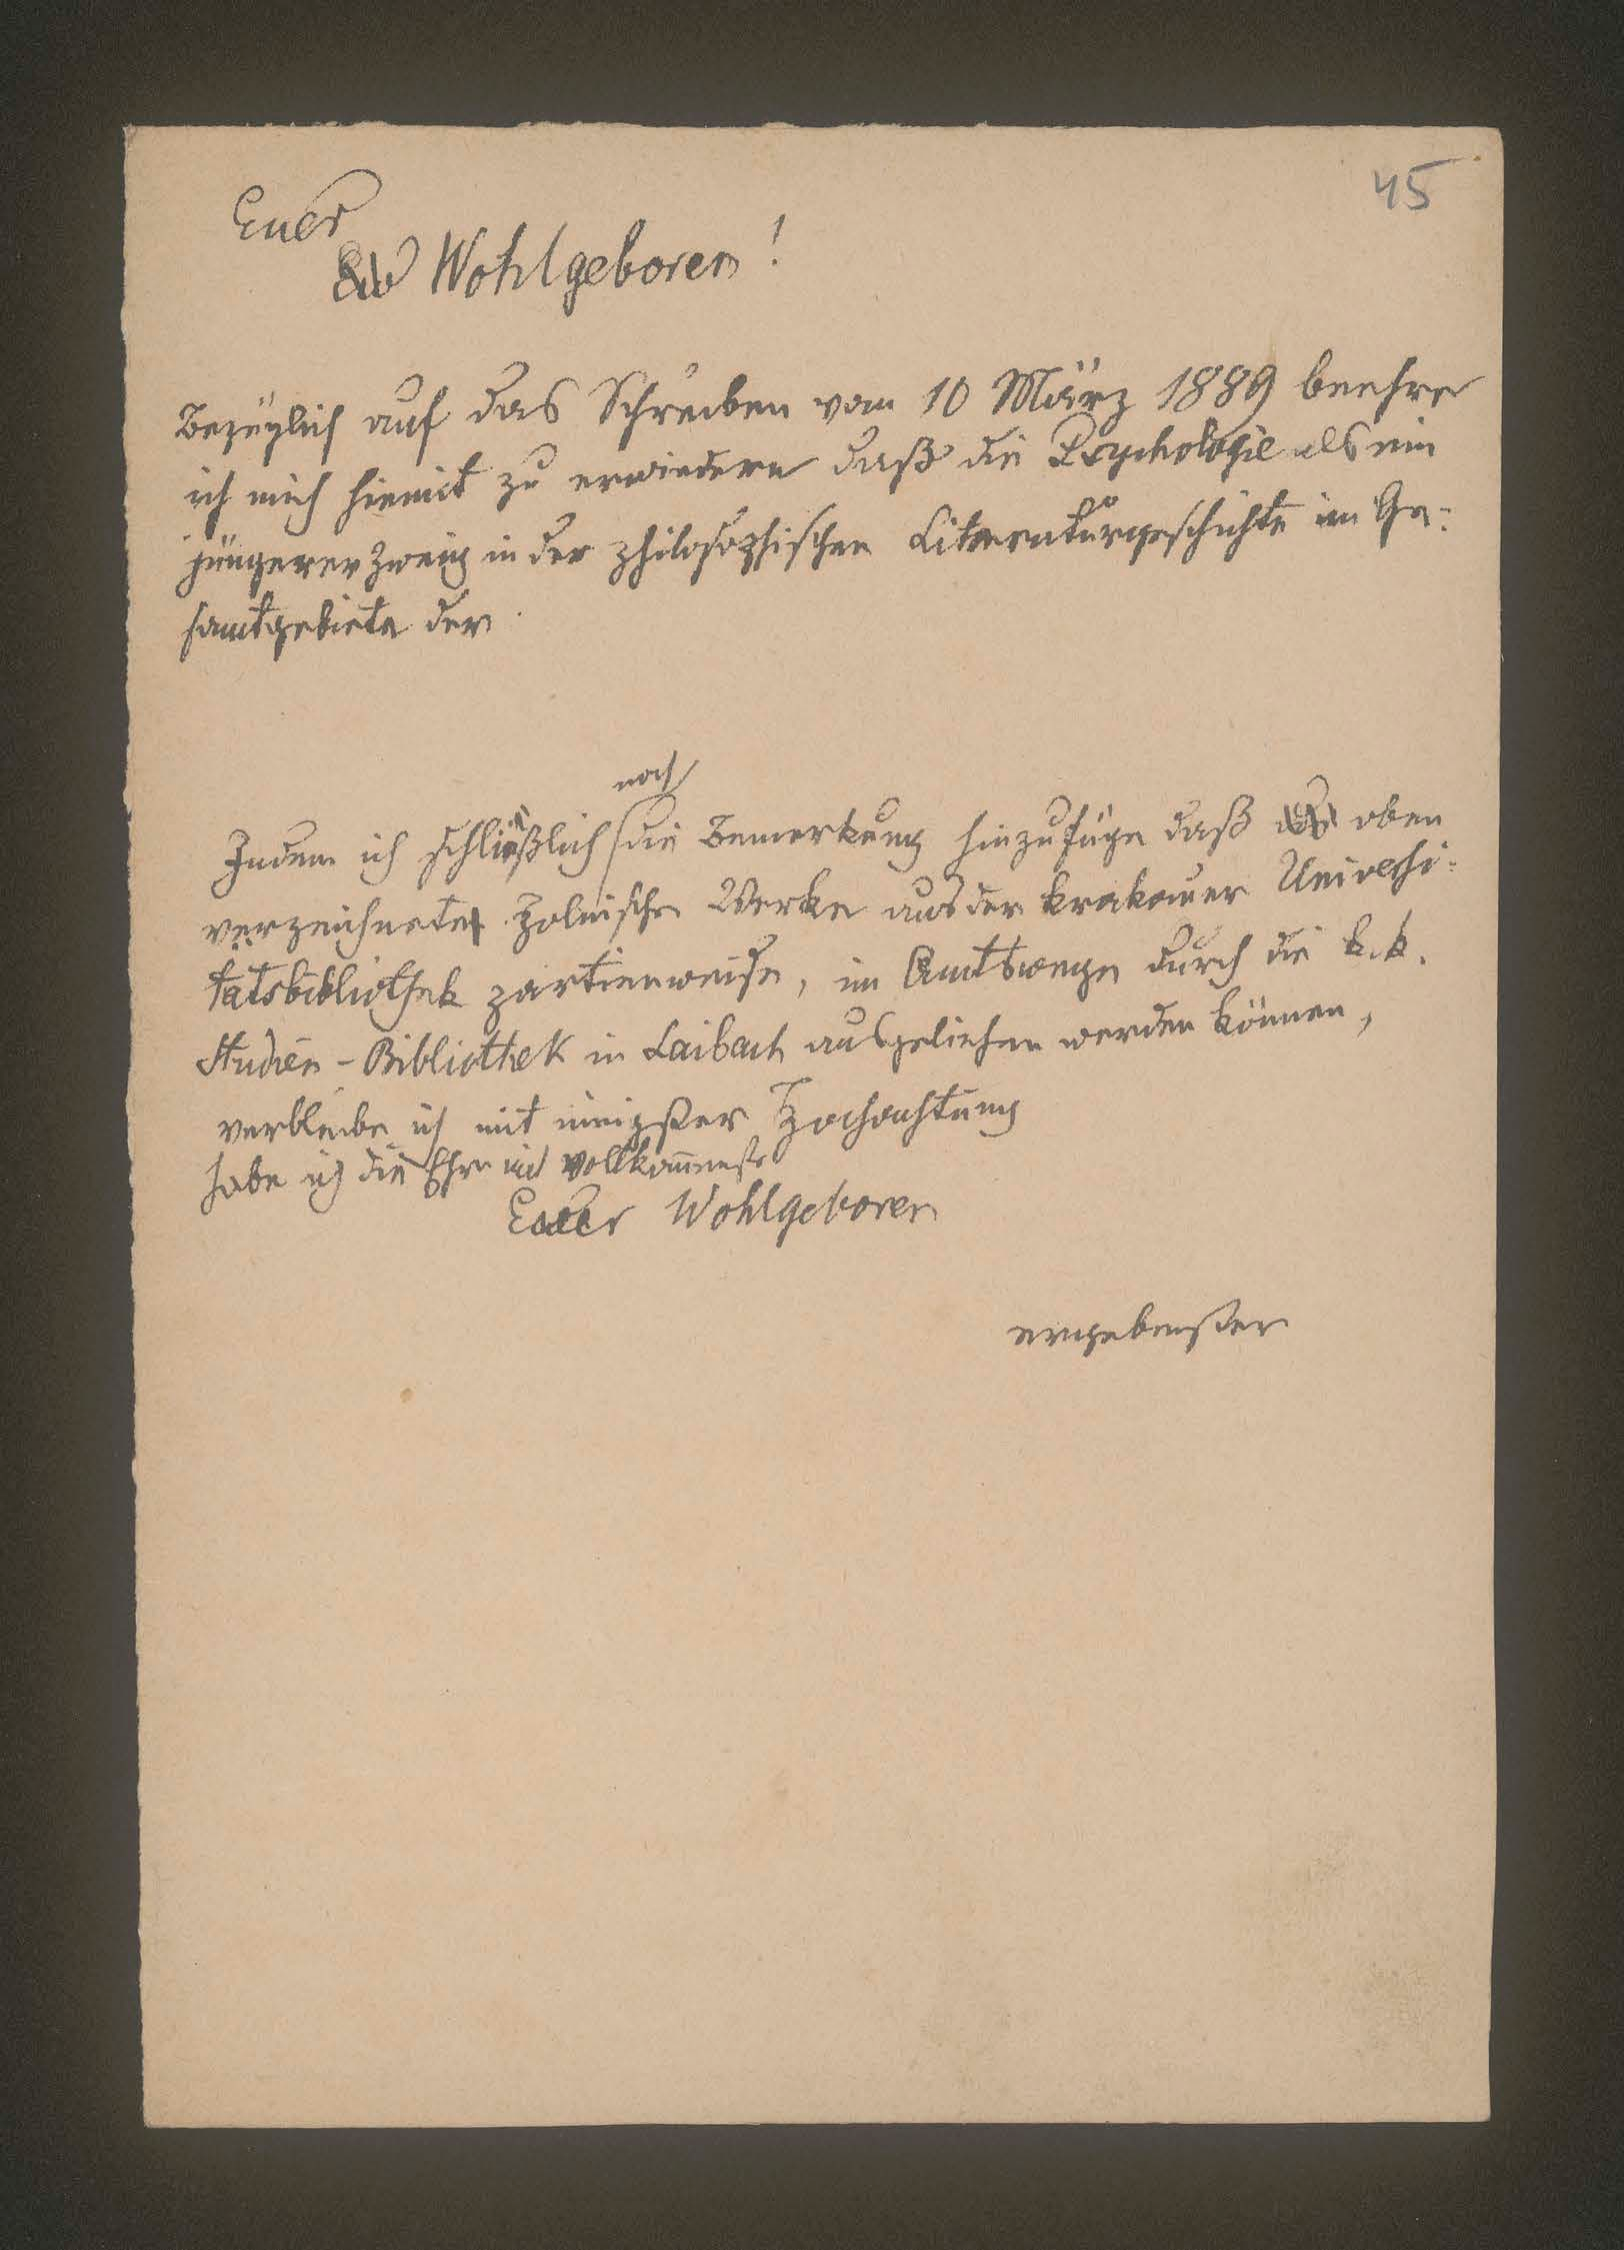 45
Euer
Wohlgeboren!
Bezüglich auf das Schreiben vom 10 März 1889 beehre
ich mich hiemit zu erwiedern daß die Psychologie als ein
jüngerer Zweig in der philosophischen Literaturgeschichte im Ge-
samtgebiete der
noch
Indem ich schließlich die Bemerkung hinzufüge daß oben
verzeichnete polnische Werke aus der krakauer Universi-
tätsbibliothek partienweise, im Amtswege durch die k.k.
Studien-Bibliothek in Laibach ausgeliehen werden können,
verbleibe ich mit innigster Hochachtung
habe ich die Ehre mit vollkommenste
Euer Wohlgeboren
ergebenster